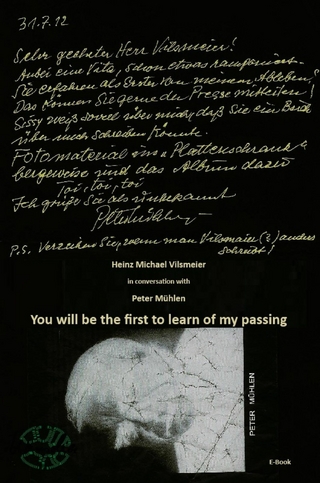 31.7.12
Sehr geehrter Herr Vilsmeier!
Anbei eine Vita, schon etwas ramponiert.
Sie erfahren als Erster von meinem Ableben!
Das können Sie gerne der Presse mitteilen!
Sissy weiß soviel über mich, daß Sie ein Buch
über mich schreiben könnte.
Fotomaterial im „Plattenschrank“
bergeweise und das Album dazu
Toi, toi, toi
Ich grüße Sie als unbekannt
Peter Mühlen
P.S. Verzeihen Sie, wenn man Vilsmaier (?) anders
schreibt!
Heinz Michael Vilsmeier
in conversation with
Peter Mühlen
You will be the first to learn of my passing
PETER MÜHLEN
E-Book